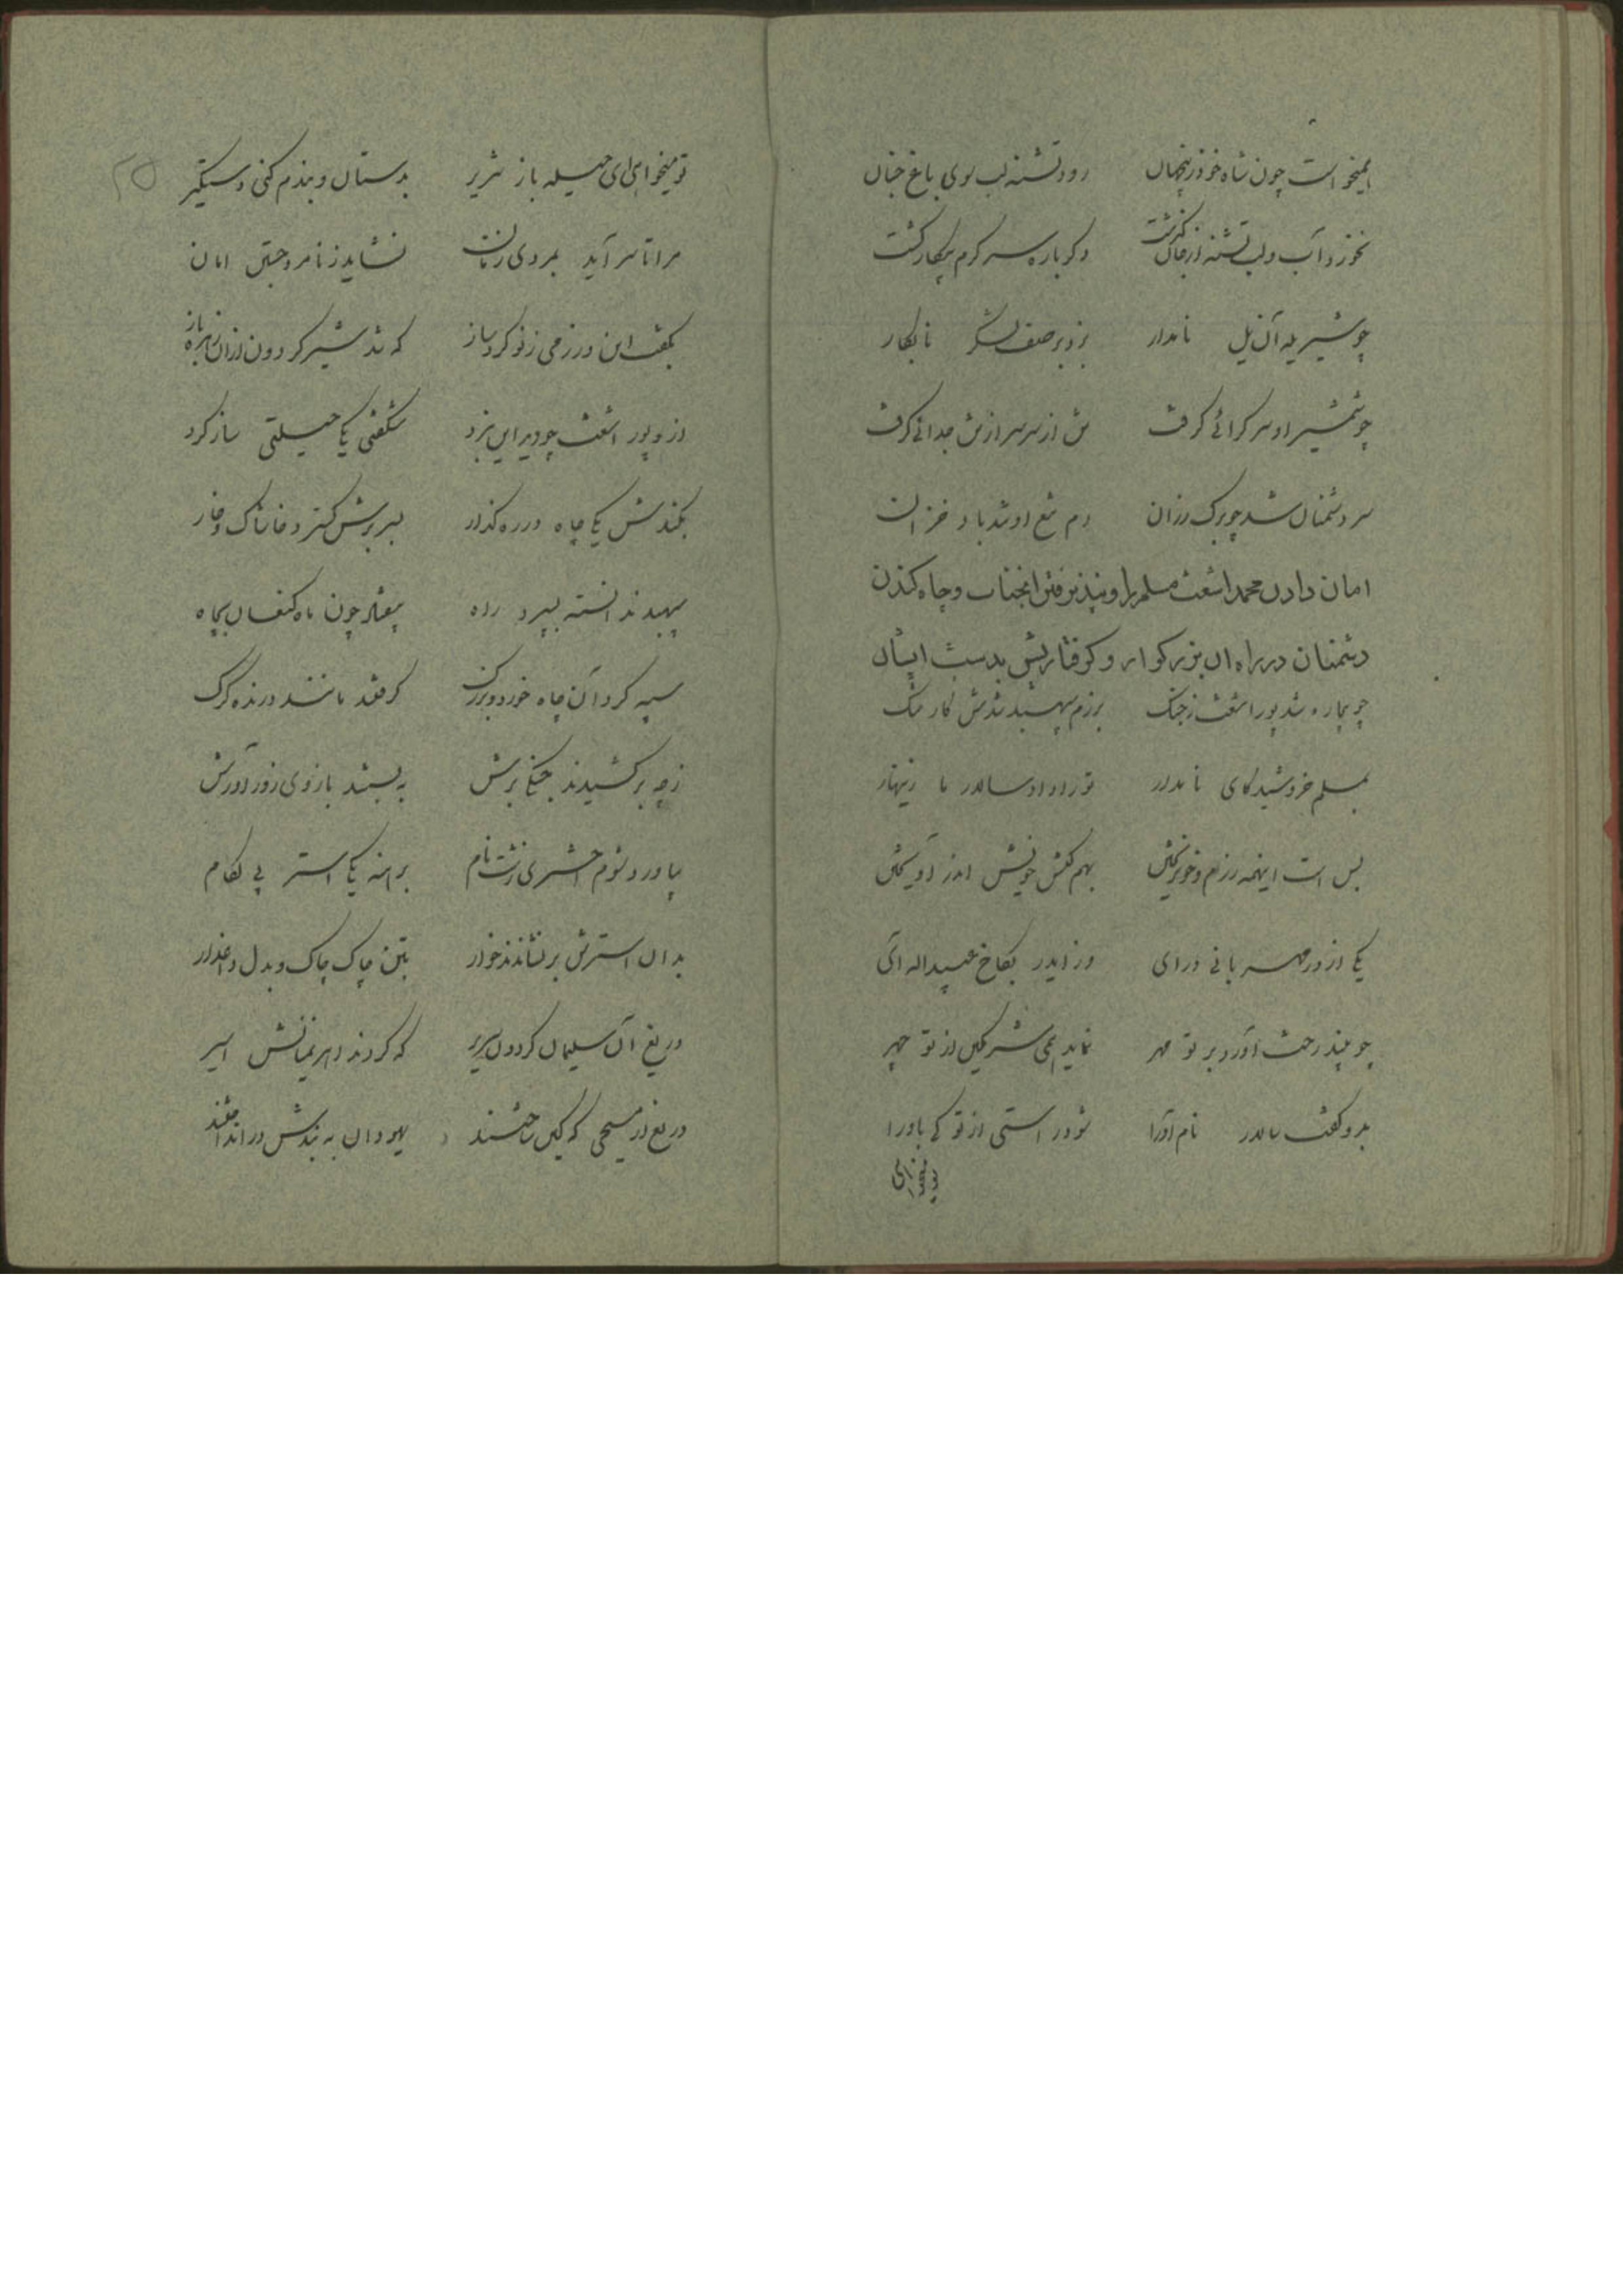 همیخواست چون شاه خود زینجهان رود تشنه لب سوی باغ جنان
نخورد آب و لب تشنه از جان گذشت دگر باره سرگرم پیکار گشت
چو شیر یله آن یل نامدار بزد بر صف لشگر نابکار
چو شمشیر او سر گرائی گرفت تن از سر سر از تن جدائی گرفت
سر دشمنان شد چو برگ رزان دم تیغ او شد باد خزان
امان دادن محمد اشعث مسلم را و نپذیرفتن انجناب و چاه کندن
دشمنان در راه ان بزرگوار و گرفتاریش بدست ایشان
چو بیچاره شد پور اشعث زجنگ برزم سپهبد شدش کار تنگ
بمسلم خروشید کای نامدار تو را داد سالار ما زینهار
بس است اینهمه رزم و خون ریختن بهم کش خویش اندر آویختن
یکی از در مهربانی درای وز ایدر بکاخ عبیداله آی
چو بیند رخت آورد بر تو مهر نماید همی شرمگین از تو چهر
بدو گفت سالار نام آورا شود راستی از تو کی باورا
تو میخواهی
تو میخواهی ای حیله باز شریر بدستان و بندم کنی دستگیر
مرا تا سر آید بمردی زمان نشاید ز نامرد جستن امان
بگفت این و رزمی ز نو کرد ساز که شد شیر گردون از ان زهره باز
ازو پور اشعث چو دید این نبرد شگفتی یکی حیلتی ساز کرد
بکندش یکی چاه در ره گذار بسر برش گسترد خاشاک و خار
سپهبد ندانسته بسپرد راه بیفتاد چون ماه کنعان بچاه
سپه گرد آن چاه خورد و بزرگ گرفتند مانند درنده گرگ
ز چه برکشیدند جنگی برش به بستند بازوی زورآورش
بیاورد شوم اختری زشت نام برهنه یکی استر بی لگام
بدان استرش برنشاندند خوار بتن چاک چاک و بدل داغدار
دریغ آن سلیمان گردون سریر که کردند اهریمنانش اسیر
دریغ از مسیحی که کین ساختند یهودان به بندش در انداختند
۲۵